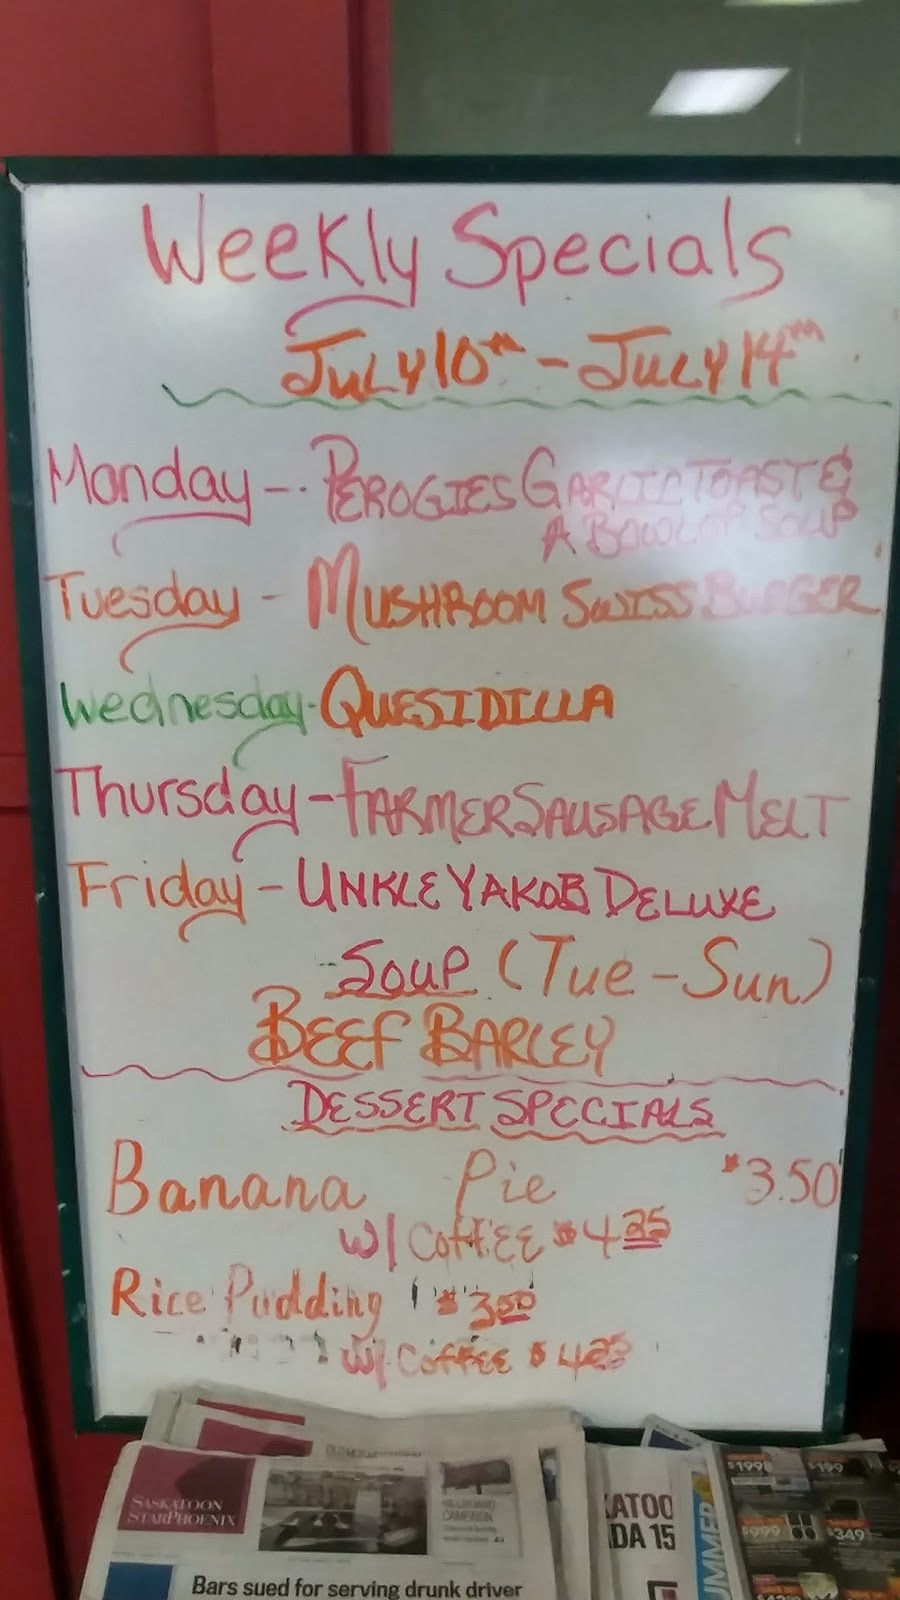 Weekly Specials
JULY 10th - JULY 14th
Monday - PEROGIES GARLIC TOAST &
A BOWL OF SOUP
Tuesday - MUSHROOM SWISS BURGER
Wednesday - QUESIDILLA
Thursday - FARMER SAUSAGE MELT
Friday - UNKLE YAKOB DELUXE
SOUP (Tue - Sun)
BEEF BARLEY
DESSERT SPECIALS
Banana Pie $3.50
w/ COFFEE $4.25
Rice Pudding $3.50
w/ COFFEE $4.25
SASKATOON
STARPHOENIX
BILLBOARD
CAMPAIGN
Bars sued for serving drunk driver
KATOO
DA 15
UMMER
$1998
$199
$999
$349